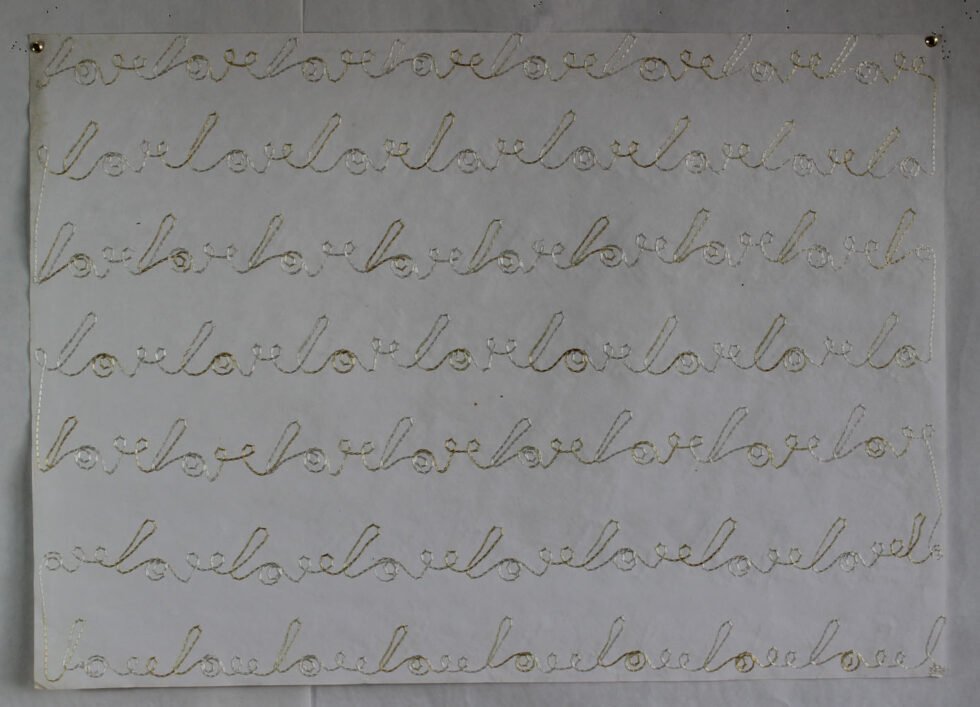 lovelovelovelovelovelovelovelove
lovelovelovelovelovelovelovelo
lovelovelovelovelovelovelovelovelo
lovelovelovelovelovelovelovelo
lovelovelovelovelovelovelovelove
ovelovelovelovelovelovelovelo
lovelovelovelovelovelovelovelovel